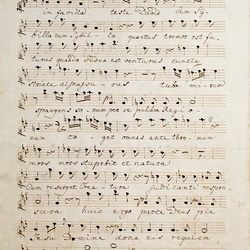 in favilla teste David cum Sy
billa cum Sybilla quantus tremor est fu
turus quando Judex est venturus cuncta
stricte discussurus tuba mirum
spargens sonum per se pulchra regio
num coget omnes ante thronum
mors mors stupebit et natura
Cum resurget creatura judicanti respon
sura huic ergo parce Deus pie
Jesu Domine dona eis requiem